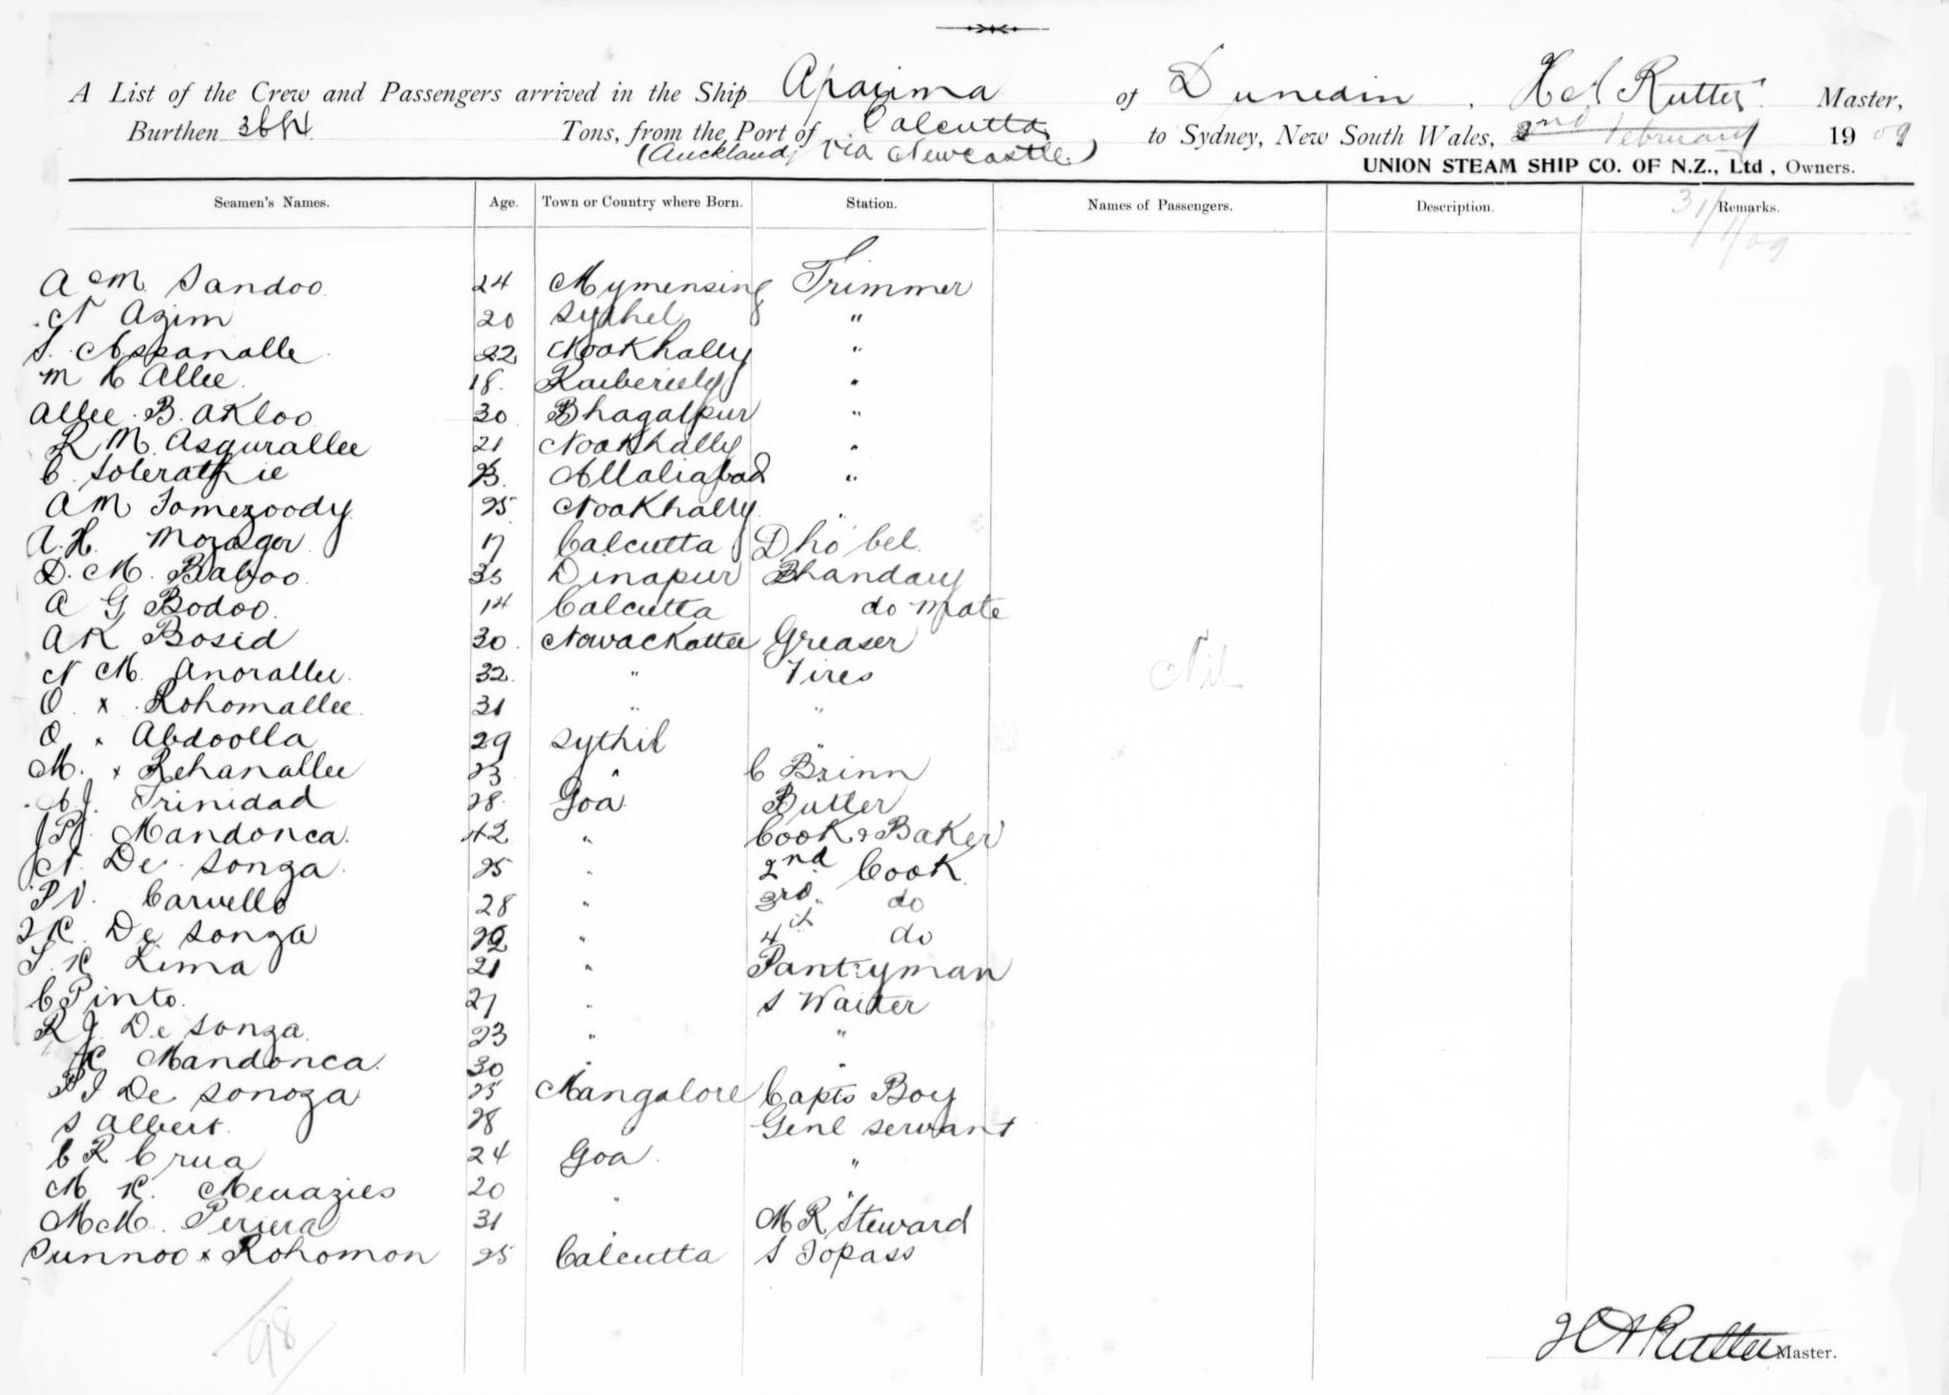 A List of the Crew and Passengers arrived in the Ship Aparima of Dunedin, H A Rutter Master,
Burthen Tons, from the Port of Calcutta to Sydney, New South Wales, 2nd February 1909
(Auckland, via Newcastle.)
UNION STEAM SHIP CO. OF N.Z., Ltd, Owners.
Seamen's Names. Age. Town or Country where Born. Station. Names of Passengers. Description. Remarks.
31/1/09
A M Sandoo 24 Mymensing Trimmer
N Azim 20 Sythel "
S. Assanalle 22 Noakhally "
M H Allee. 18. "
Allee. B. Akloo 30 Bhagalpur "
R M. Asgurallee 21 Noakhally "
C. "
A M Tomezoody 25 Noakhally "
A. H. Mozager 17 Calcutta Dhobel.
D. M. Baboo 35 Dinapur Bhandary
A G Bodoo. 14 Calcutta do Mate
A K Bosid 30. Nowackattee Greaser
N M. Anorallee. 32. " Fires
O. x Rohomallee. 31 " "
O. x Abdoolla 29 Sythil "
M. x Rehanallee 23 " C Brinn
A. J. Trinidad 28. Goa Butler
P. J. Mandonca. 42 " Cook & Baker
N. De Sonza. 25 " 2nd Cook
P V. Carvello 28 " 3rd. do
De Sonza " 4th do
S. K Lima 21 " Pantryman
C Pinto. 27 " S Waiter
R J. De Sonza. 23 " "
K Mandonca. 30 " "
P J De Sonoza 25 Mangalore Capts Boy
S Albert. 28 Genl Servant
C R Crua 24 Goa. "
M K. Menazies 20 " "
M. M. Periera 31 " M R Steward
Sunnoo x Rohomon 25 Calcutta S Topass
Nil
98
H A Rutter Master.